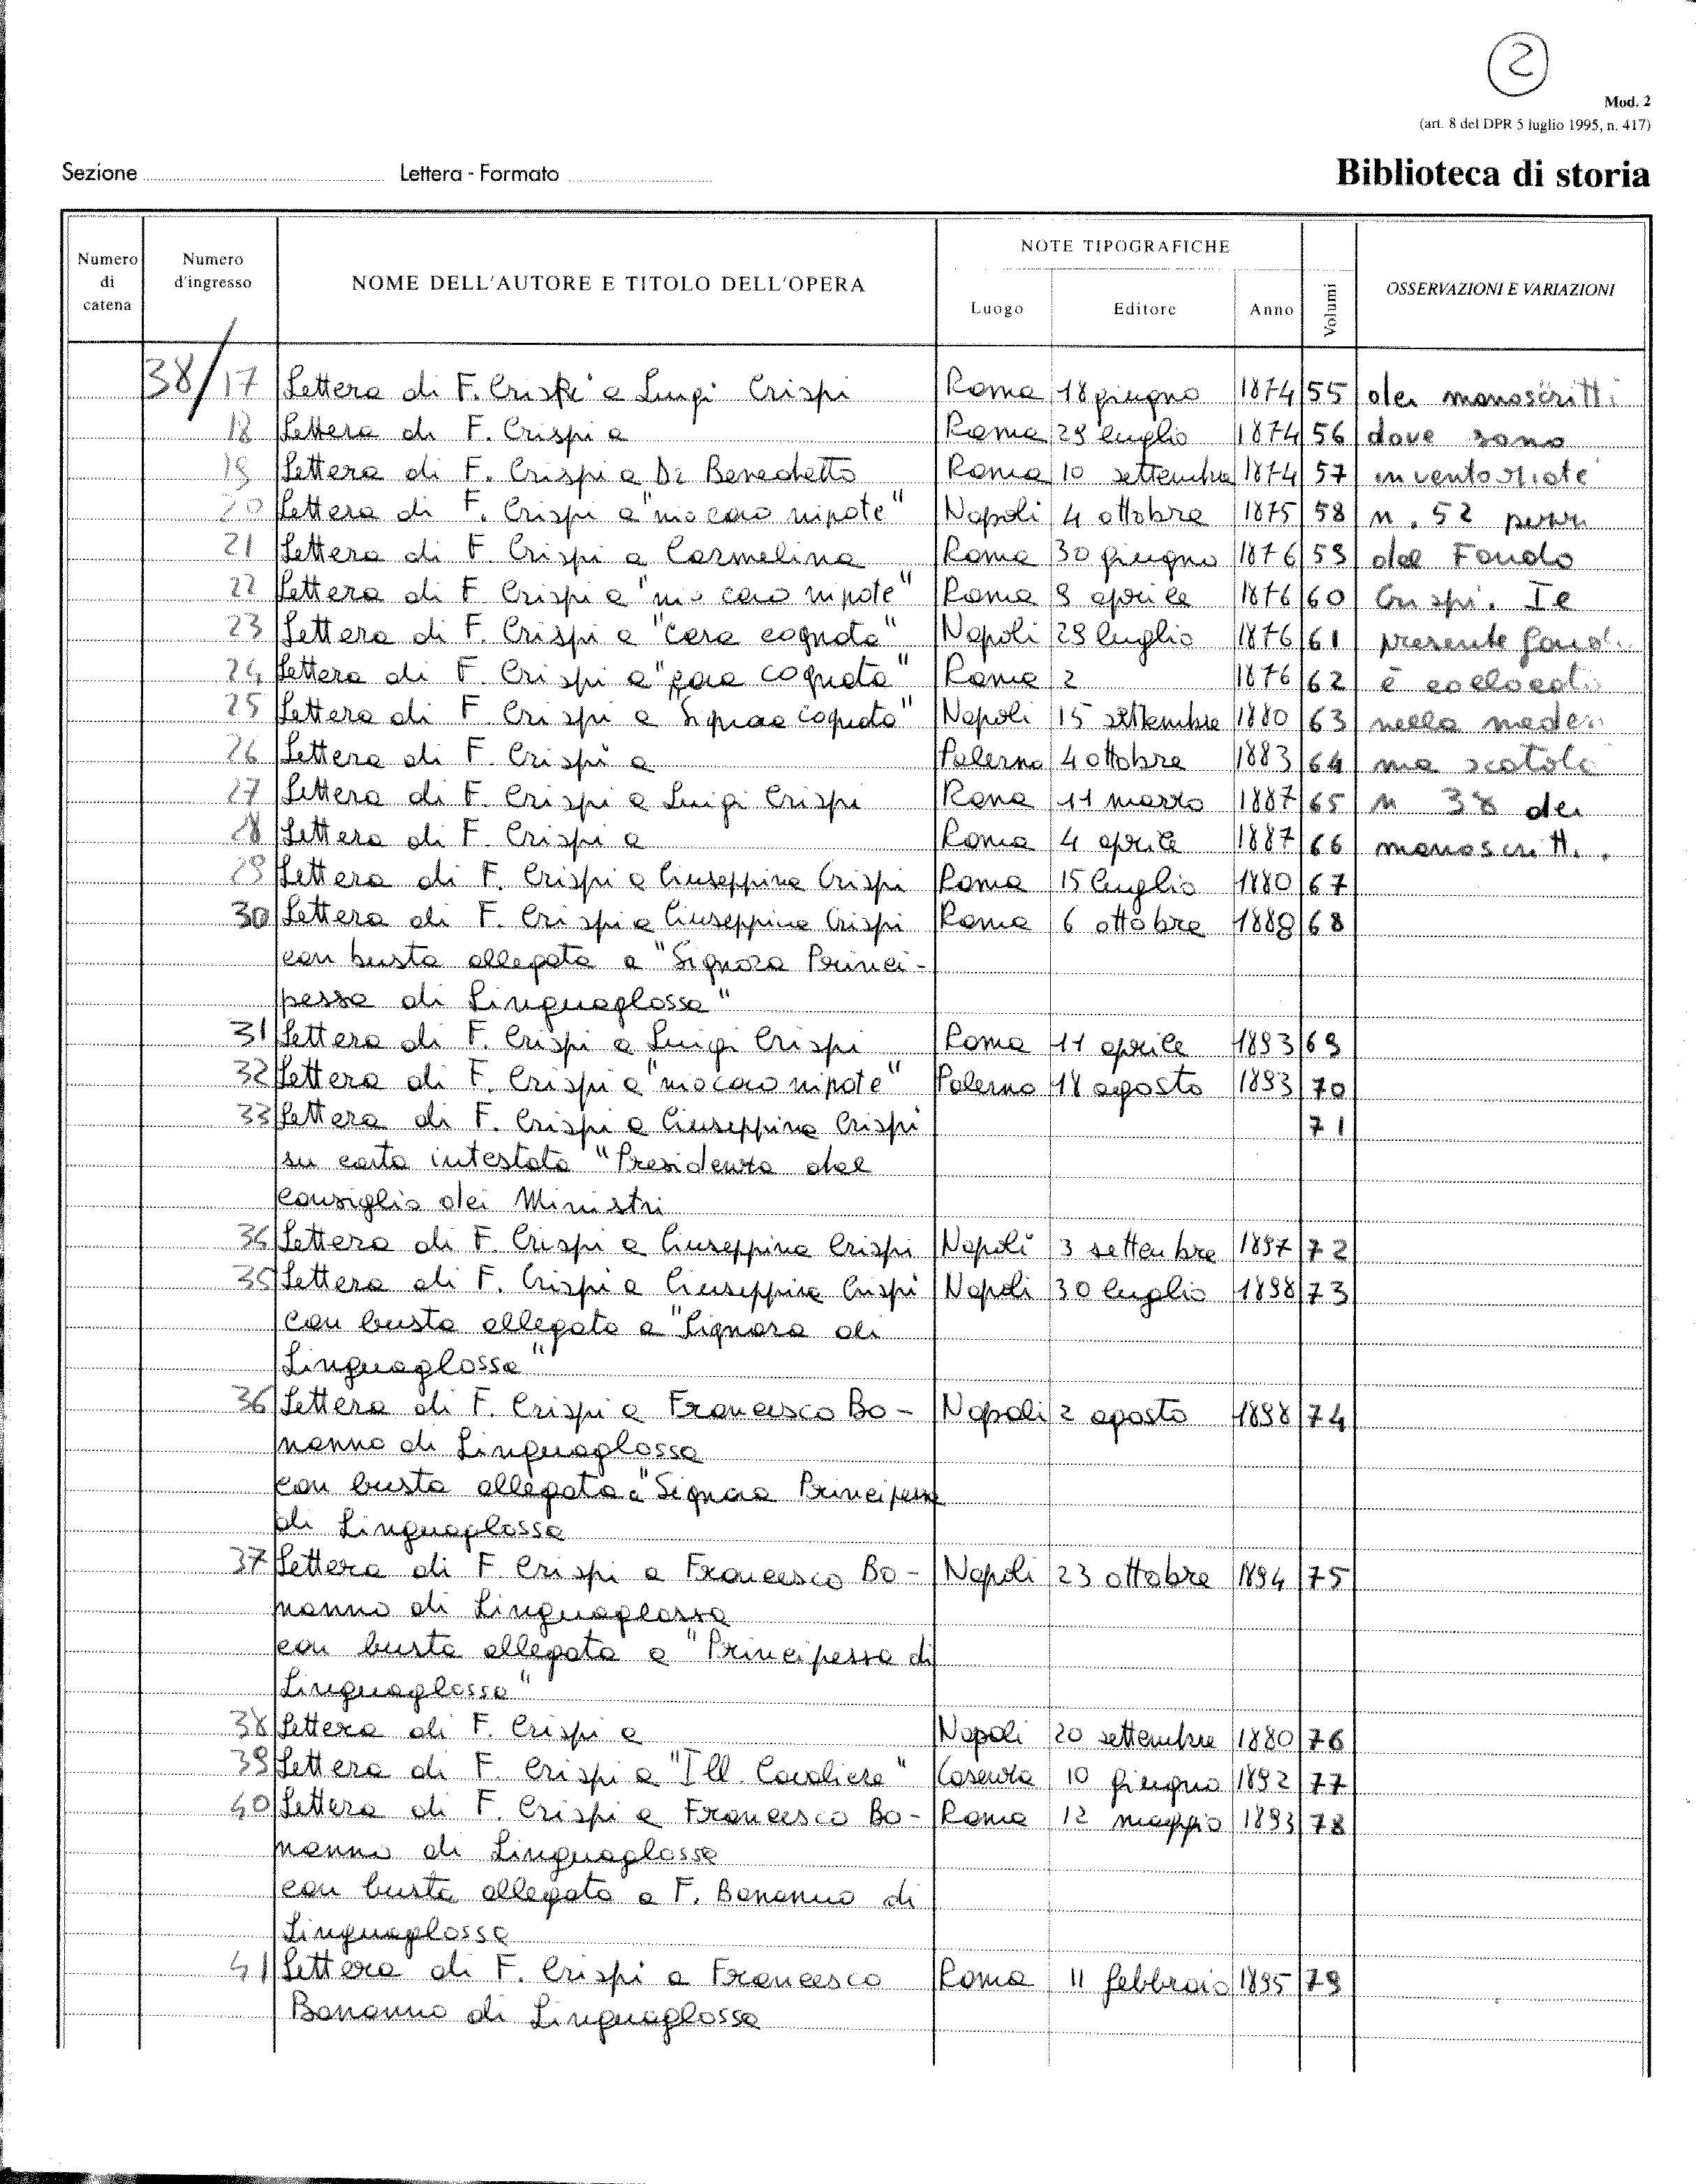 2
Mod. 2
(art. 8 del DPR 5 luglio 1995, n. 417)
Sezione Lettera - Formato Biblioteca di storia
Numero di catena
Numero d'ingresso
NOME DELL'AUTORE E TITOLO DELL'OPERA
NOTE TIPOGRAFICHE
Luogo Editore Anno
Volumi
OSSERVAZIONI E VARIAZIONI
38/17 Lettera di F. Crispi a Luigi Crispi Roma 18 giugno 1874 55 dei manoscritti
18 Lettera di F. Crispi a Roma 29 luglio 1874 56 dove sono
19 Lettera di F. Crispi a Di Benedetto Roma 10 settembre 1874 57 inventoriate
20 Lettera di F. Crispi a "mio caro nipote" Napoli 4 ottobre 1875 58 n. 52 pezzi
21 Lettera di F Crispi a Carmelina Roma 30 giugno 1876 59 del Fondo
22 Lettera di F Crispi a "mio caro nipote" Roma 9 aprile 1876 60 Crispi. Il
23 Lettera di F. Crispi a "Cara cognata" Napoli 29 luglio 1876 61 presente
24 Lettera di F. Crispi a "cara cognata" Roma 2 1876 62 è collocato
25 Lettera di F Crispi a "Signora cognata" Napoli 15 settembre 1880 63 nella medesi
26 Lettera di F. Crispi a Palermo 4 ottobre 1883 64 ma scatola
27 Lettera di F. Crispi a Luigi Crispi Roma 11 marzo 1887 65 n 38 dei
28 Lettera di F. Crispi a Roma 4 aprile 1887 66 manoscritti.
29 Lettera di F. Crispi a Giuseppina Crispi Roma 15 luglio 1880 67
30 Lettera di F. Crispi a Giuseppina Crispi Roma 6 ottobre 1889 68
con busta allegata a "Signora Princi-
pessa di Linguaglossa"
31 Lettera di F. Crispi a Luigi Crispi Roma 11 aprile 1893 69
32 Lettera di F. Crispi a "mio caro nipote" Palermo 18 agosto 1893 70
33 Lettera di F. Crispi a Giuseppina Crispi 71
su carta intestata "Presidenza del
Consiglio dei Ministri
34 Lettera di F. Crispi a Giuseppina Crispi Napoli 3 settembre 1897 72
35 Lettera di F. Crispi a Giuseppina Crispi Napoli 30 luglio 1898 73
con busta allegata a "Signora di
Linguaglossa"
36 Lettera di F. Crispi a Francesco Bo- Napoli 2 agosto 1898 74
nanno di Linguaglossa
con busta allegata a "Signora Principessa
di Linguaglossa
37 Lettera di F. Crispi a Francesco Bo- Napoli 23 ottobre 1894 75
nanno di Linguaglossa
con busta allegata a "Principessa di
Linguaglossa"
38 Lettera di F. Crispi a Napoli 20 settembre 1880 76
39 Lettera di F. Crispi a "Ill. Cavaliere" Cosenza 10 giugno 1892 77
40 Lettera di F. Crispi a Francesco Bo- Roma 12 maggio 1893 78
nanno di Linguaglossa
con busta allegata a F. Bonanno di
Linguaglossa
41 Lettera di F. Crispi a Francesco Roma 11 febbraio 1895 79
Bonanno di Linguaglossa